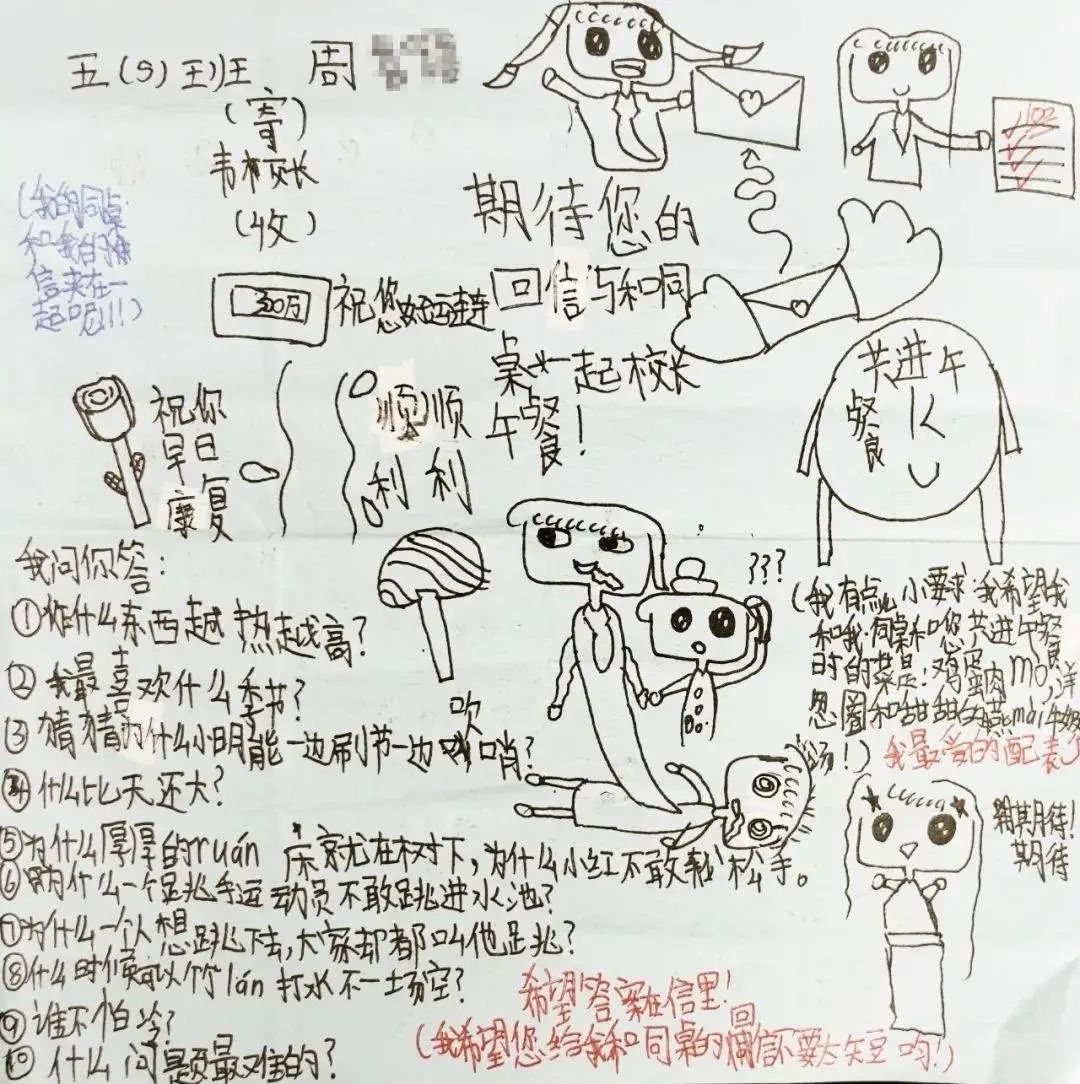 五(9)班 周
(寄)
韦校长
(收)
(我的同桌
和我的
信夹在一
起呢!!!)
102
期待您的
回信与和同
桌一起校长
午餐!
300万
祝您好运连连
祝你
早日
康复
顺顺
利利
共进午
餐
我问你答:
①什么东西越热越高?
②我最喜欢什么季节?
③猜猜为什么小明能一边刷牙一边吹哨?
④什么比天还大?
⑤为什么厚厚的ruán 床就在树下,为什么小红不敢松手。
⑥为什么一个跳水运动员不敢跳进水池?
⑦为什么一个人想跳下去,大家却都叫他跳?
⑧什么时候可以竹lán 打水不一场空?
⑨谁不怕冷?
⑩什么问题最难的?
???
(我有点儿小要求:我希望我
和我同桌和您共进午餐
时的菜是:鸡蛋肉mó,洋
忽圈和甜甜的燕mài牛奶
汤!)
我最爱的配表
期待!
期待
希望答案在信里!
(我希望您给我和同桌的回信不要太短哟!)